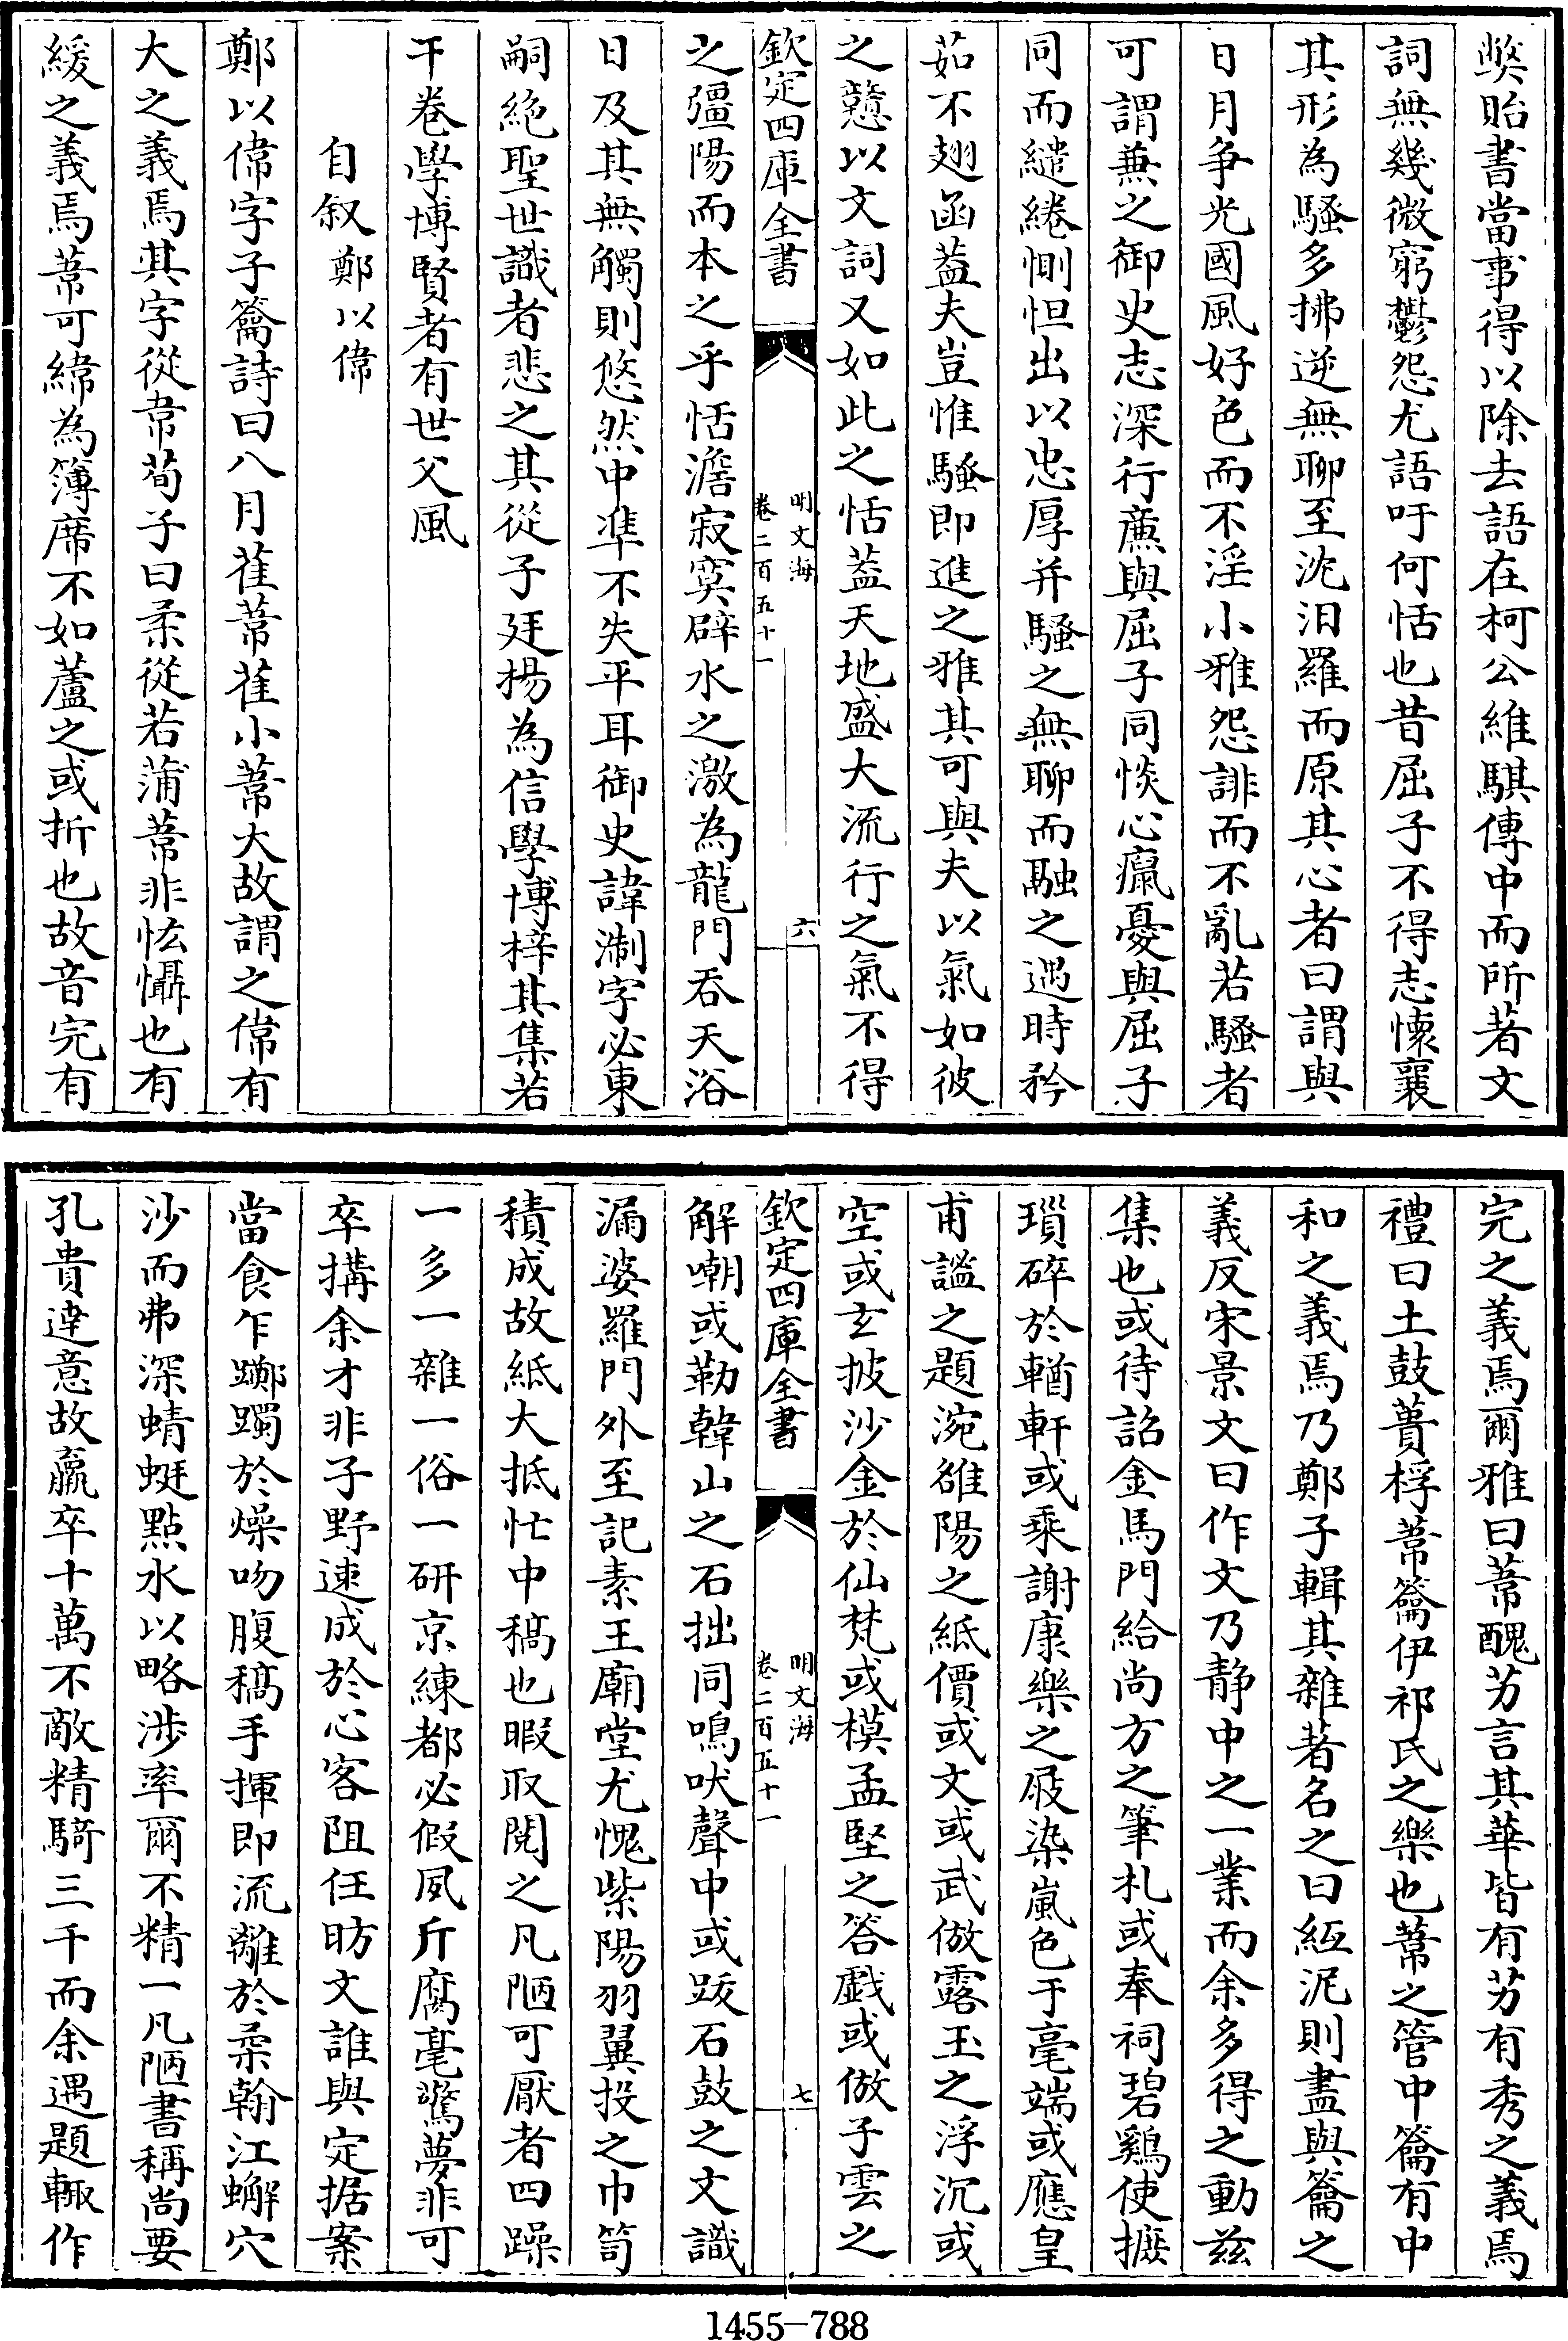 獘貽書當事得以除去語在柯公維騏傳中而所著文
詞無幾微窮鬱怨尤語吁何恬也昔屈子不得志懷襄
其形為騷多拂逆無聊至沈汨羅而原其心者曰謂與
日月争光國風好色而不淫小雅怨誹而不亂若騷者
可謂兼之御史志深行廉與屈子同惔心癙憂與屈子
同而繾綣惻怛出以忠厚并騷之無聊而融之遇時矜
茹不翅函葢夫豈惟騷即進之雅其可與夫以氣如彼
之戇以文詞又如此之恬葢天地盛大流行之氣不得
欽定四庫全書
明文海
卷二百五十一
六
之彊陽而本之乎恬澹寂寞辟水之激為龍門吞天浴
日及其無觸則悠然中準不失平耳御史諱淛字必東
嗣絶聖世識者悲之其從子廷揚為信學博梓其集若
干卷學博賢者有世父風
自叙 鄭以偉
鄭以偉字子籥詩曰八月萑葦萑小葦大故謂之偉有
大之義焉其字從韋荀子曰柔從若蒲葦非怯懾也有
緩之義焉葦可緯為簿席不如蘆之或折也故音完有
完之義焉爾雅曰葦醜芀言其華皆有芀有秀之義焉
禮曰土鼓蕢桴葦籥伊祁氏之樂也葦之管中籥有中
和之義焉乃鄭子輯其雜著名之曰絚泥則盡與籥之
義反宋景文曰作文乃静中之一業而余多得之動兹
集也或待詔金馬門給尚方之筆札或奉祠碧鷄使摭
瑣碎於輶軒或乘謝康樂之屐染嵐色于毫端或應皇
甫謐之題涴雒陽之紙價或文或武倣露玉之浮沉或
空或玄披沙金於仙梵或模孟堅之答戲或倣子雲之
欽定四庫全書
明文海
卷二百五十一
七
解嘲或勒韓山之石拙同鳴吠聲中或跋石鼓之文識
漏婆羅門外至記素王廟堂尤愧紫陽羽翼投之巾笥
積成故紙大抵忙中稿也暇取閲之凡陋可厭者四躁
一多一雜一俗一研京練都必假夙斤腐毫驚夢非可
卒搆余才非子野速成於心客阻任昉文誰與定据案
當食乍躑躅於燥吻腹稿手揮即流離於柔翰江蠏穴
沙而弗深蜻蜓點水以略涉率爾不精一凡陋書稱尚要
孔貴達意故羸卒十萬不敵精騎三千而余遇題輒作
1455-788